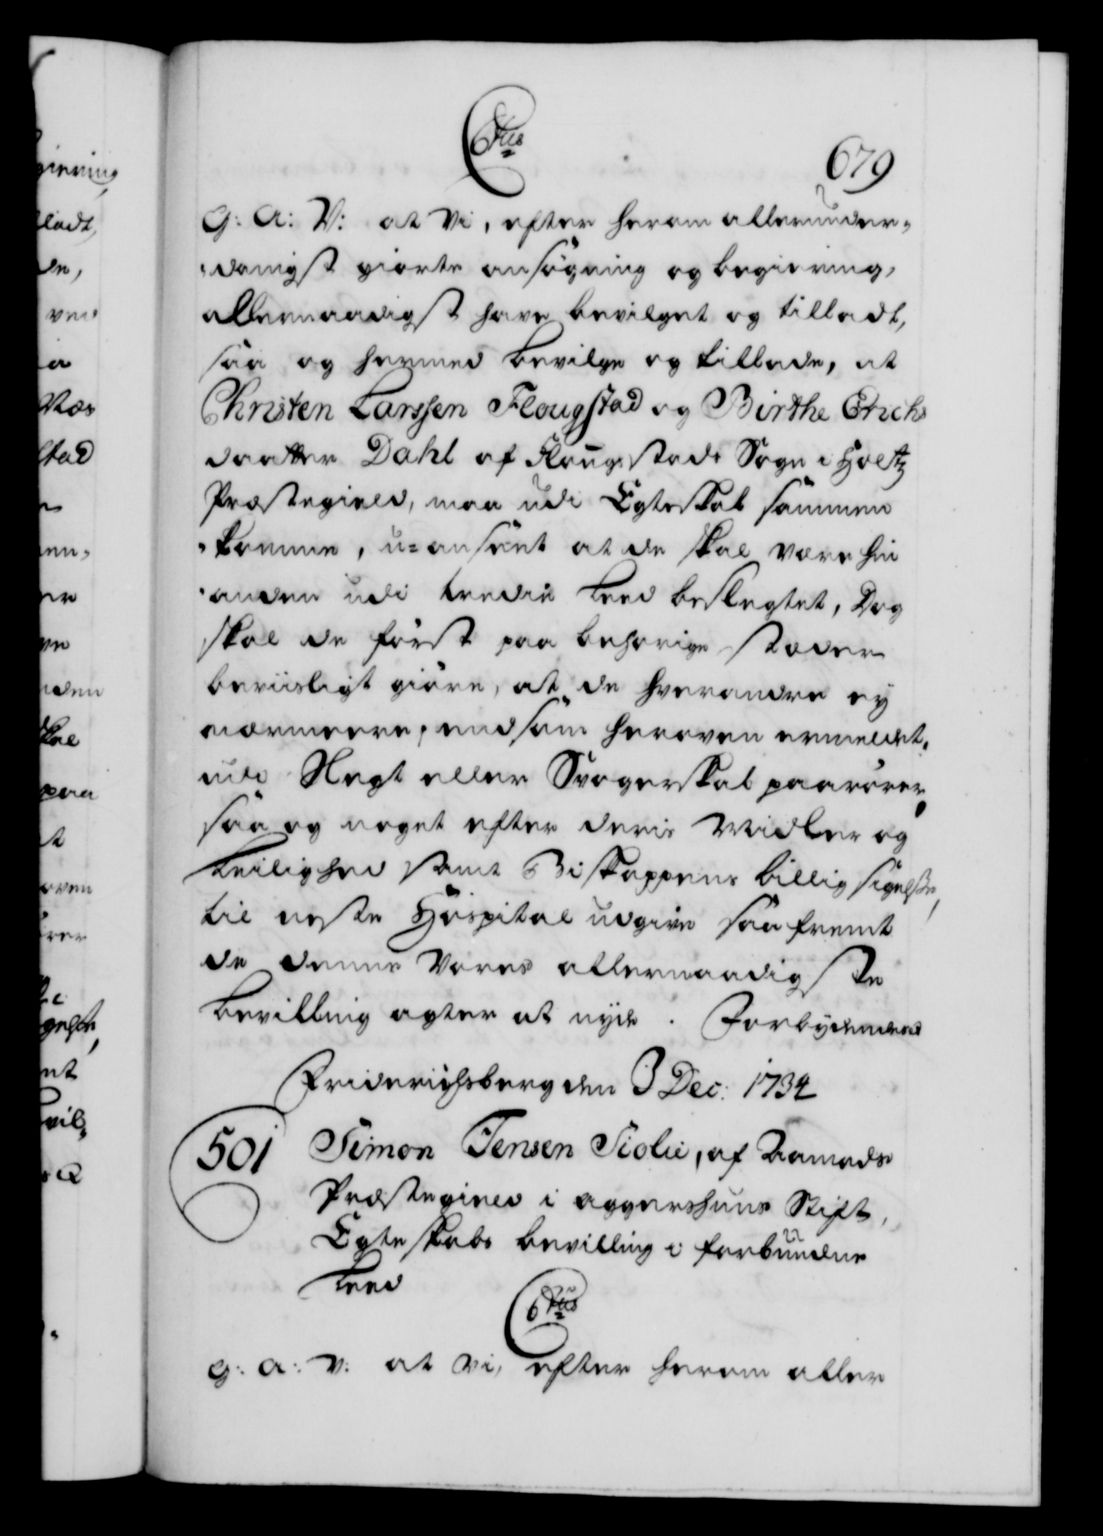 C 6tus
679
G: A: V: at Vi, efter herom allerunder-
-danigst giorte ansøgning og begiering,
allernaadigst have bevilget og tilladt,
saa og hermed bevilge og tillade, at
Christen Larssen Flougstad og Birthe Erichs
daatter Dahl af Flougstads Sogn i Holtz
Præstegield, maa udi Egteskab sammen
-komme, u-anseet at de skal være hin
-anden udi tredie Leed beslegtet, Dog
skal de først paa behørige stæder
beviisligt giøre, at de hverandre ey
nærmeere, end som heroven ermeldt,
udi Slegt eller Svogerskab paarører,
saa og noget efter deris Midler og
Leilighed samt Biskoppens billig sigelse,
til neste Hospital udgive saa fremt
de denne Vores allernaadigste
bevilling agter at nyde. Forbydendes
Friderichsberg den 3 Dec: 1734
501 Simon Jensen Siolie, af Ramnds
Præstegield i Aggershuus Stift,
Egteskabs bevilling i forbundne
Leed
C 6tus
G: A: V: at Vi, efter herom aller